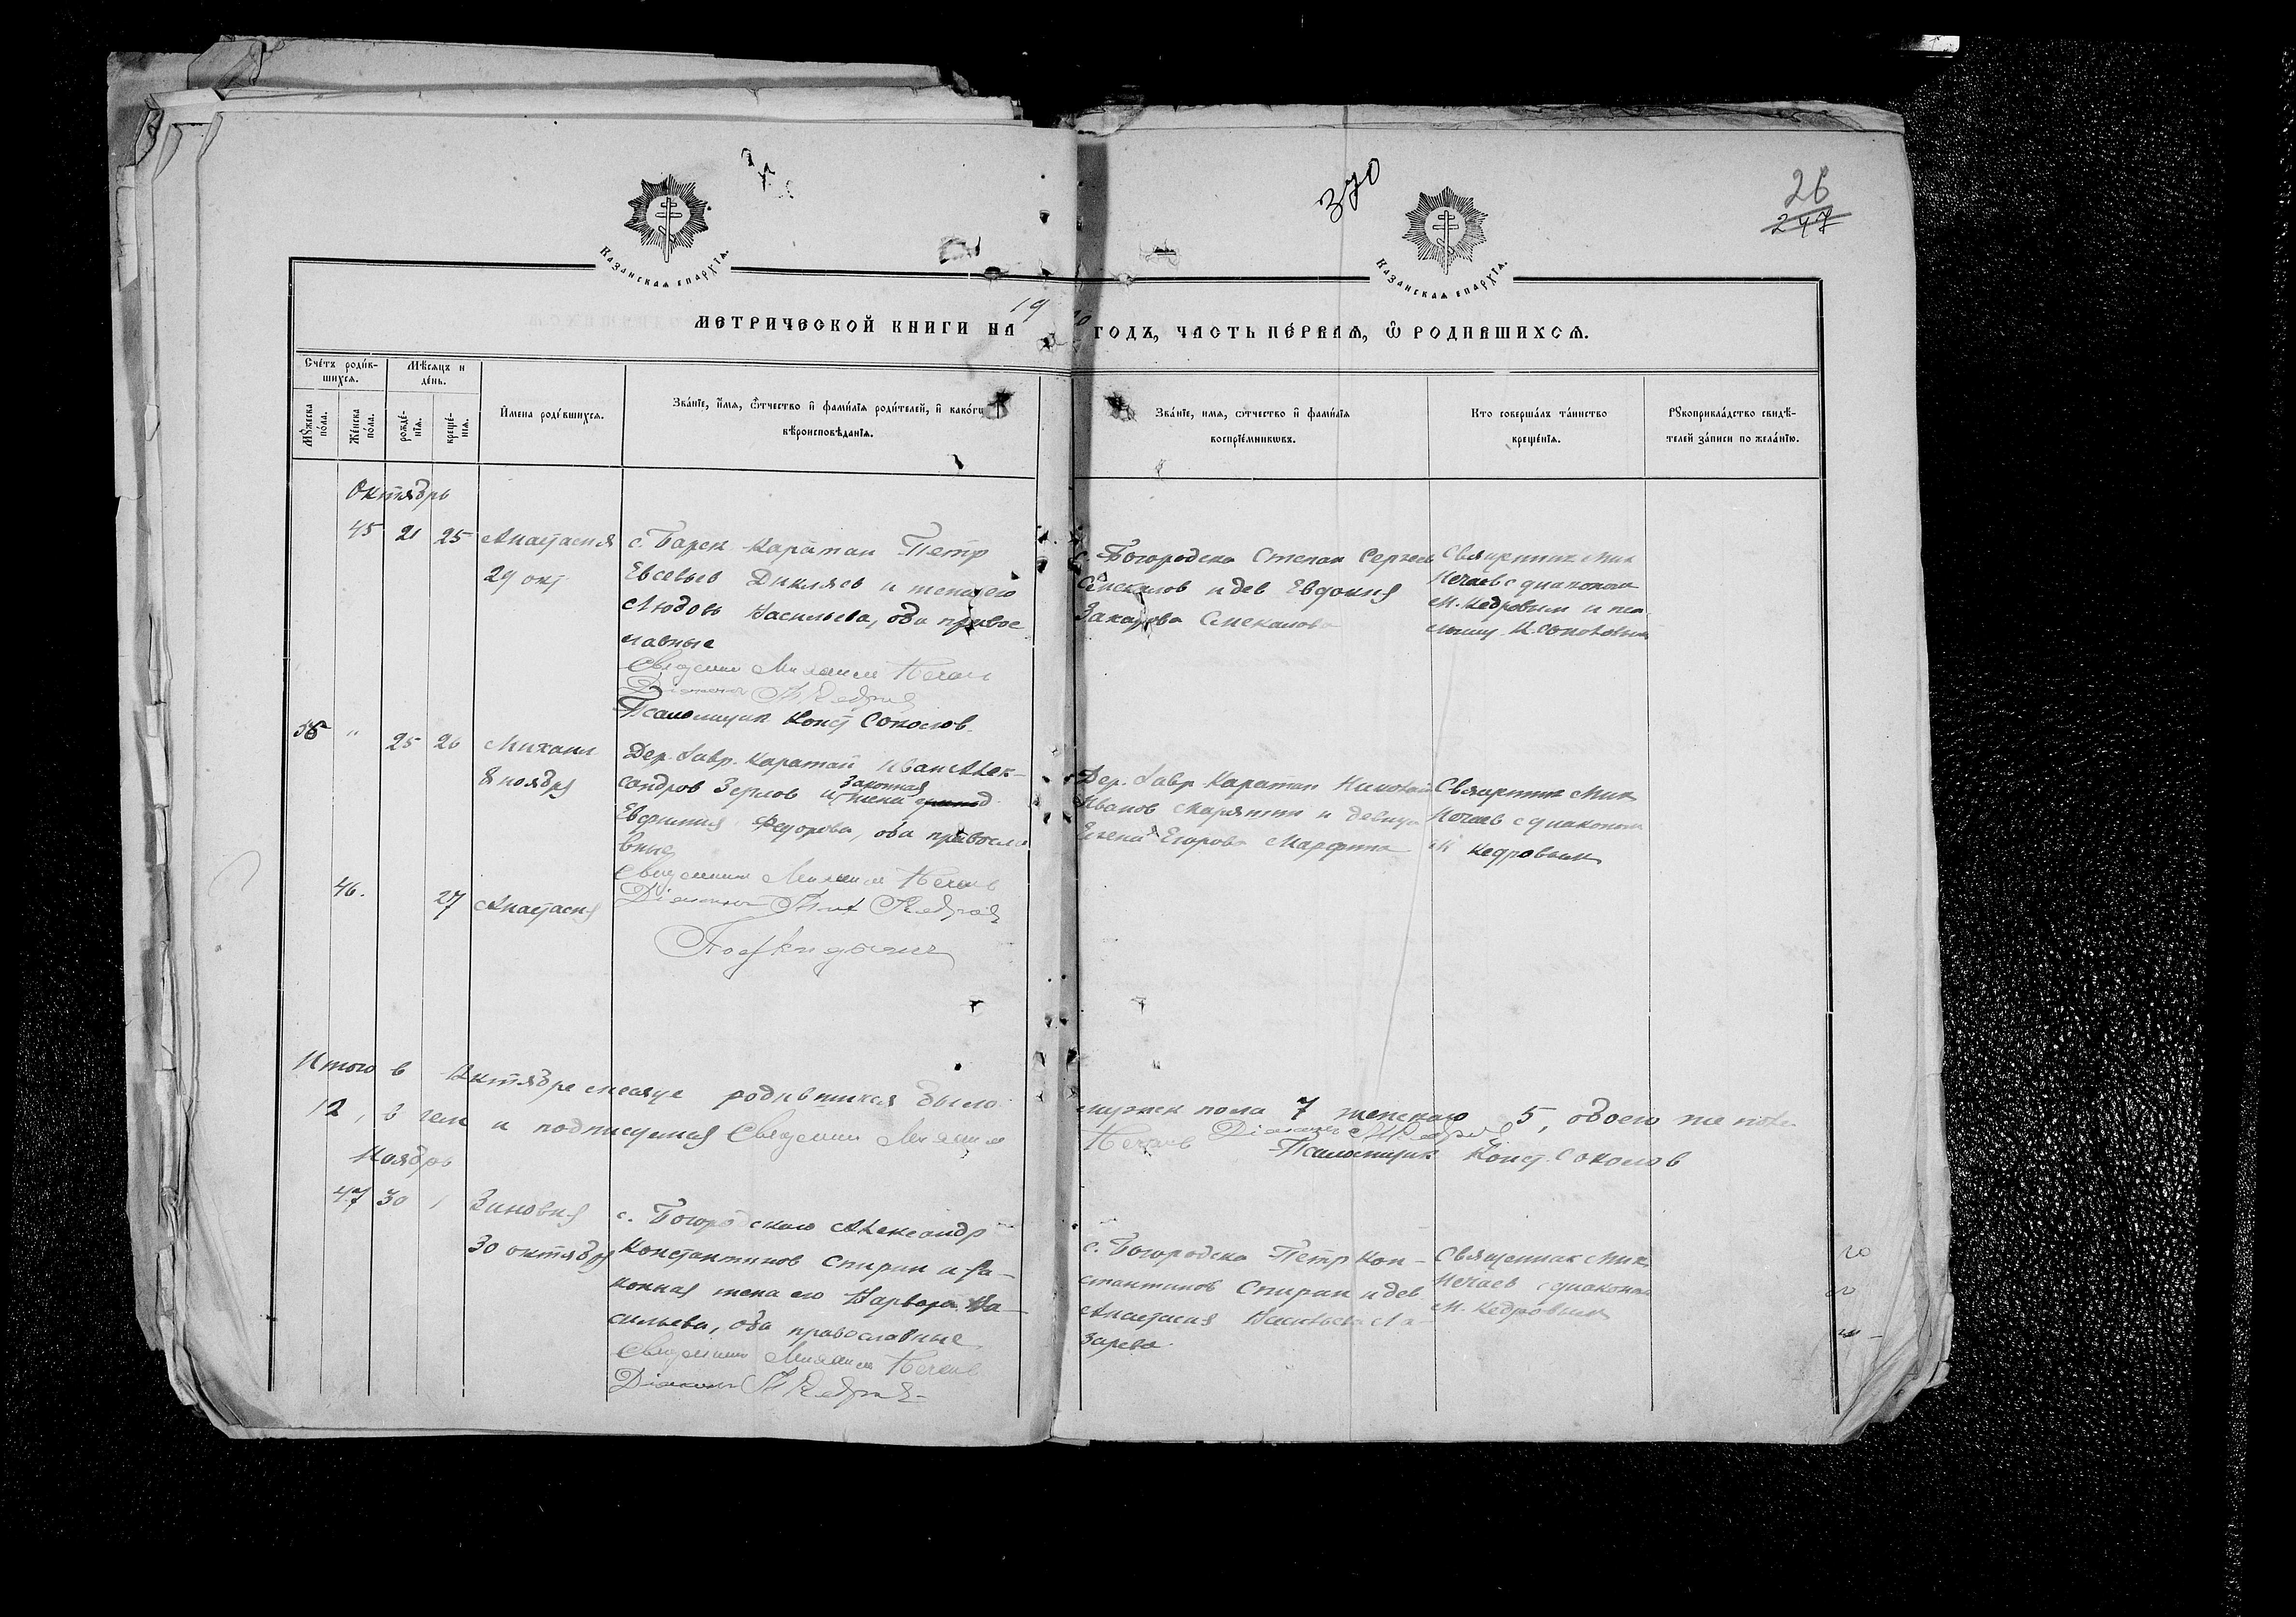 370
26
247
Казанская епархія.
Казанская епархія.
МЕТРИЧЕСКОЙ КНИГИ НА 19
20 ГОДЪ, ЧАСТЬ ПЕ́РВАЯ, Ѿ РОДИВШИХСЯ.
Сче́тъ роди́в-
шихся.
Мѣ́сяцъ и
де́нь.
Мꙋжеска
по́ла.
Же́нска
по́ла.
рожде́-
нїя.
креще́-
нїя.
И́мена роди́вшихся.
Зва́нїе, и́мя, ѻ́тчество и҆ фами́лїя роди́телей, и҆ како́гѡ
вѣроисповѣ́данїя.
Зва́нїе, имя, ѻтчество и҆ фами́лїя
воспрїе́мниковъ.
Кто соверша́лъ та́инство
креще́нїя.
Рꙋкоприкла́дство свидѣ́-
телей за́писи по жела́нїю.
Октябрь
45 21 25 Анастасия
29 окт
с. Барск. Каратаи Петр
Евсевьев Дикляев и жена его
Любовь Васильева, оба правос
лавные
Священник Михаил Нечаев
Диаконъ М Кедров
Псаломщик Конст Соколов.
с. Богородска Степан Сергеев
и дев Евдокия
Захарова
Священник Мих
Нечаев с диаконом
М. Кедровым и пса
ломщ К. Соколовым
38 " 25 26 Михаил
8 ноября
Дер. Лавр. Каратаи Иван Алек-
сандров Зерлов и законная жена
Евфимия Федорова, оба правосла
вные
Священник Михаил Нечаев
Діаконъ Мих Кедров
Дер. Лавр Каратаи Николай
Иванов и девица
Елена Егорова
Священник Мих
Нечаев с диаконом
М Кедровым
46. 27 Анастасия
Подкидыш
Итого в Октябре месяце родившихся было
мужск пола 7 женскаго 5, обоего же пола
12, в чем и подписуемся Священник Михаил
Нечаев Діаконъ М Кедров
Псаломщик Конст. Соколов
Ноябрь
47 30 1 Зиновия
30 октября
с. Богородскаго Александр
Константинов Спирин и за-
конная жена его Варвара Ва-
сильева, оба православные
Священник Михаил Нечаев
Діаконъ М Кедров
с. Богородска Петр Кон-
стантинов Спирин и дев
Анастасия Васильева Ла-
зарева.
Священник Мих
Нечаев с диаконом
М. Кедровым